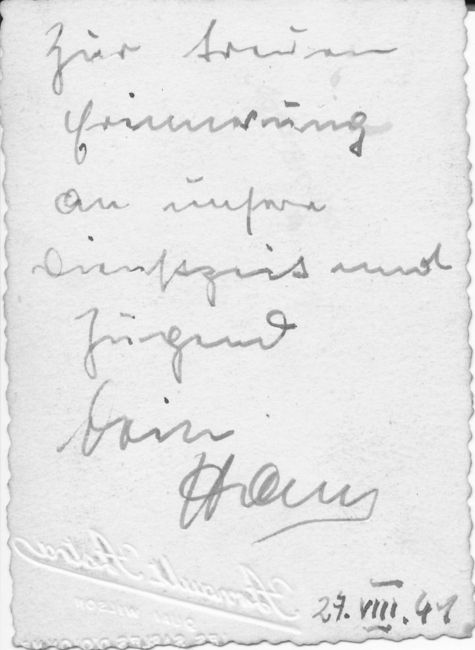 Zur treuen
Erinnerung
an unsere
Dienstzeit und
Jugend
Dein
Hans
27. VIII. 41
WILSON